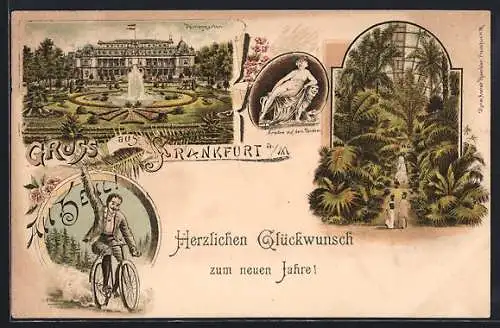 Palmengarten
Ariadne auf dem Panther
Gruss aus Frankfurt a/M
All Heil!
Herzlichen Glückwunsch
zum neuen Jahre!